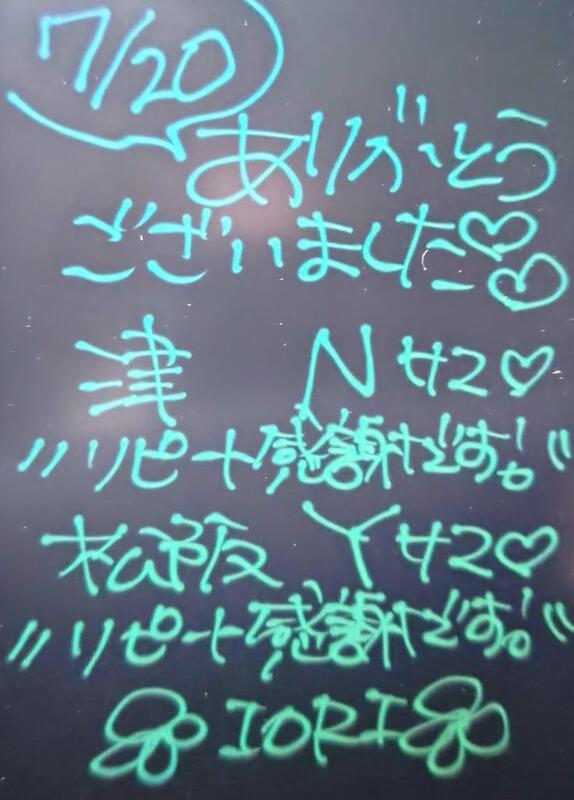 7/20
ありがとう
ございました♡♡
津 Nサマ♡
〃リピート感謝です!!〃
松阪 Yサマ♡
〃リピート感謝です!!〃
IORI